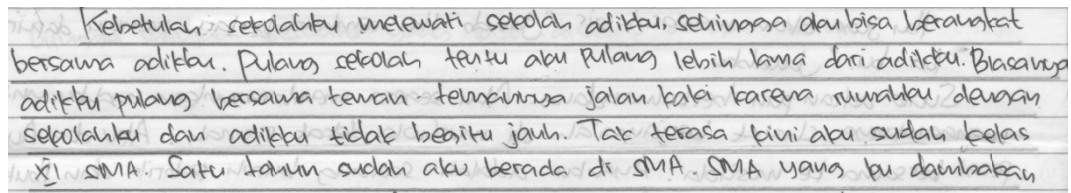 Kebetulan sekolahku melewati sekolah adikku, sehingga aku bisa berangkat
bersama adikku. Pulang sekolah tentu aku pulang lebih lama dari adikku. Biasanya
adikku pulang bersama teman-temannya jalan kaki karena rumahku dengan
sekolahku dan adikku tidak begitu jauh. Tak terasa kini aku sudah kelas
XI SMA. Satu tahun sudah aku berada di SMA. SMA yang ku dambakan